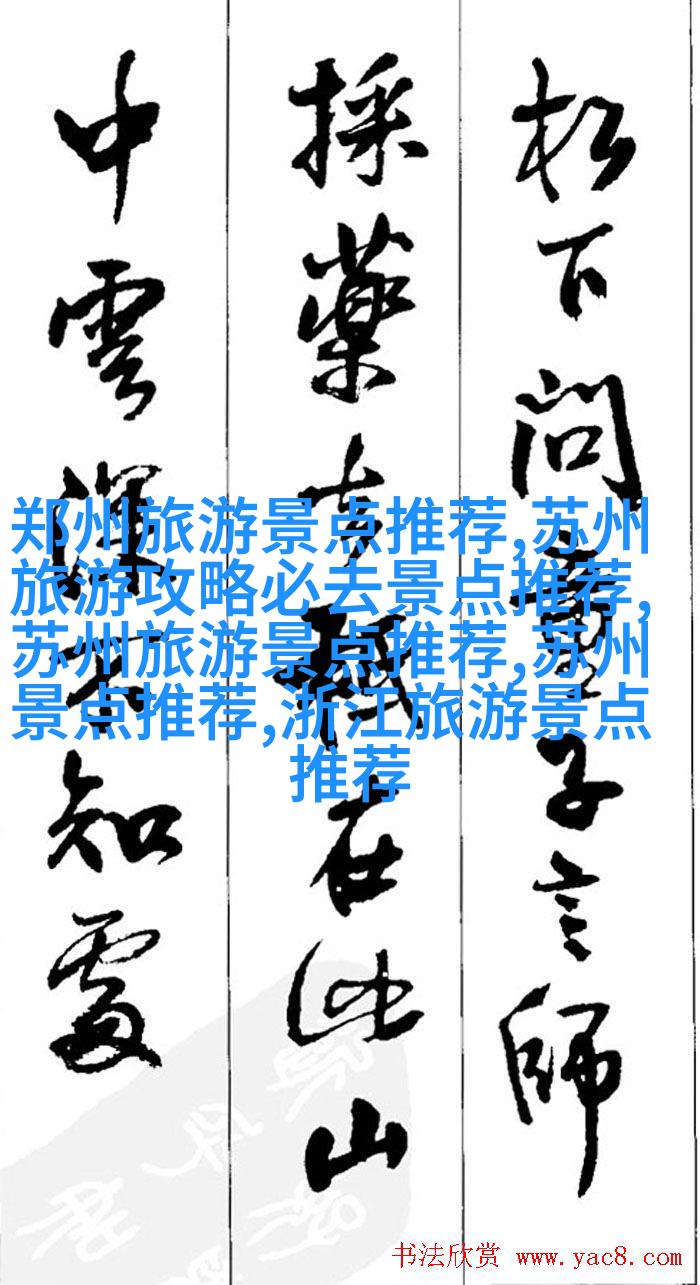 松下问童子言師
採藥去祇在此山
中雲深不知處
郑州旅游景点推荐,苏州
旅游攻略必去景点推荐,
苏州旅游景点推荐,苏州
景点推荐,浙江旅游景点
推荐
书法欣赏 www.yac8.com